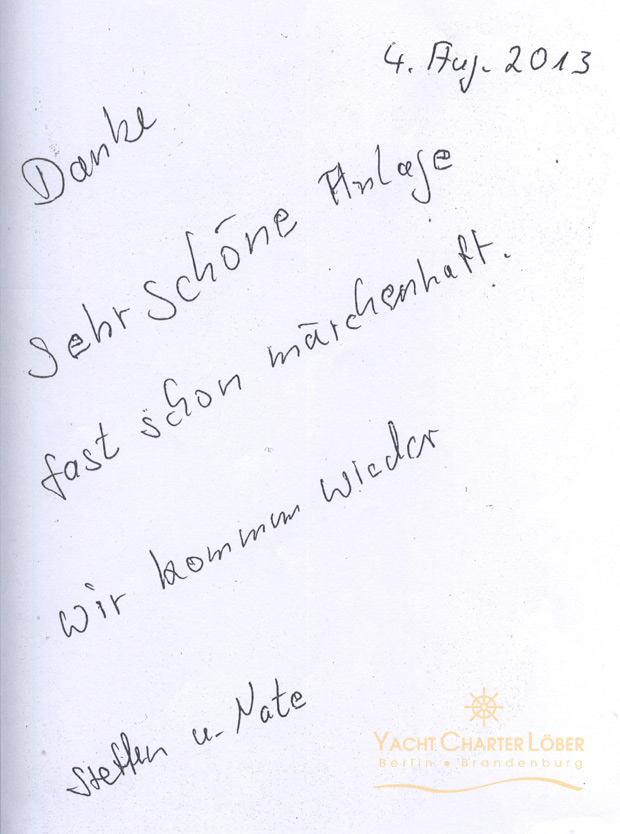 4. Aug. 2013
Danke
Sehr Schöne Anlage
fast schon märchenhaft.
wir kommen wieder
Steffen u. Nate
YACHT CHARTER LÖBER
Berlin • Brandenburg